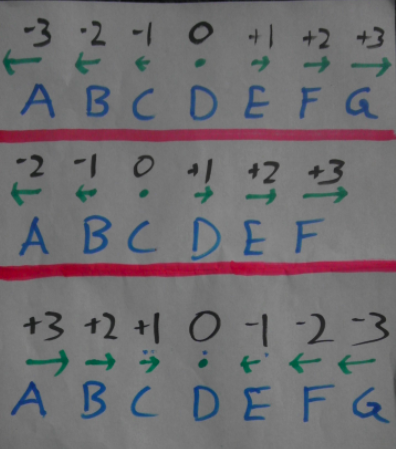 -3 -2 -1 0 +1 +2 +3
A B C D E F G
-2 -1 0 +1 +2 +3
A B C D E F
+3 +2 +1 0 -1 -2 -3
A B C D E F G